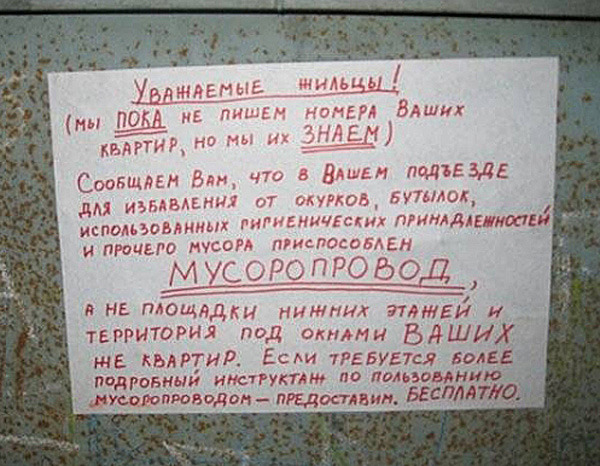 Уважаемые жильцы!
(мы ПОКА не пишем номера Ваших
квартир, но мы их ЗНАЕМ)
Сообщаем Вам, что в Вашем подъезде
для избавления от окурков, бутылок,
использованных гигиенических принадлежностей
и прочего мусора приспособлен
МУСОРОПРОВОД,
а не площадки нижних этажей и
территория под окнами ВАШИХ
же квартир. Если требуется более
подробный инструктаж по пользованию
мусоропроводом – предоставим. БЕСПЛАТНО.